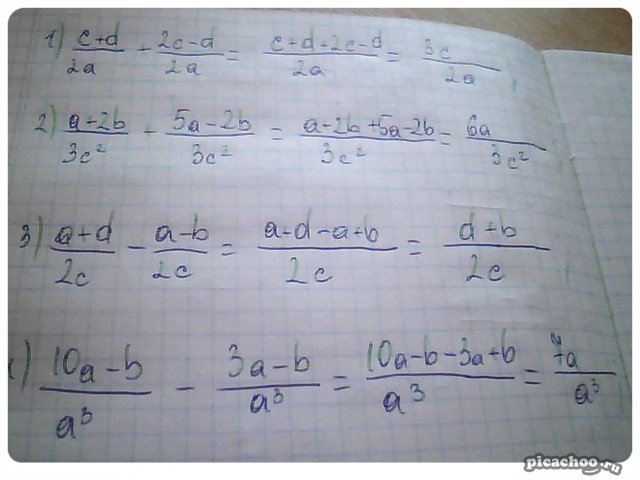 1) (c+d)/(2a) + (2c-d)/(2a) = (c+d+2c-d)/(2a) = (3c)/(2a)
2) (a+2b)/(3c²) + (5a-2b)/(3c²) = (a+2b+5a-2b)/(3c²) = (6a)/(3c²)
3) (a+d)/(2c) - (a-b)/(2c) = (a+d-a+b)/(2c) = (d+b)/(2c)
) (10a-b)/(a³) - (3a-b)/(a³) = (10a-b-3a+b)/(a³) = (7a)/(a³)
picachoo.ru